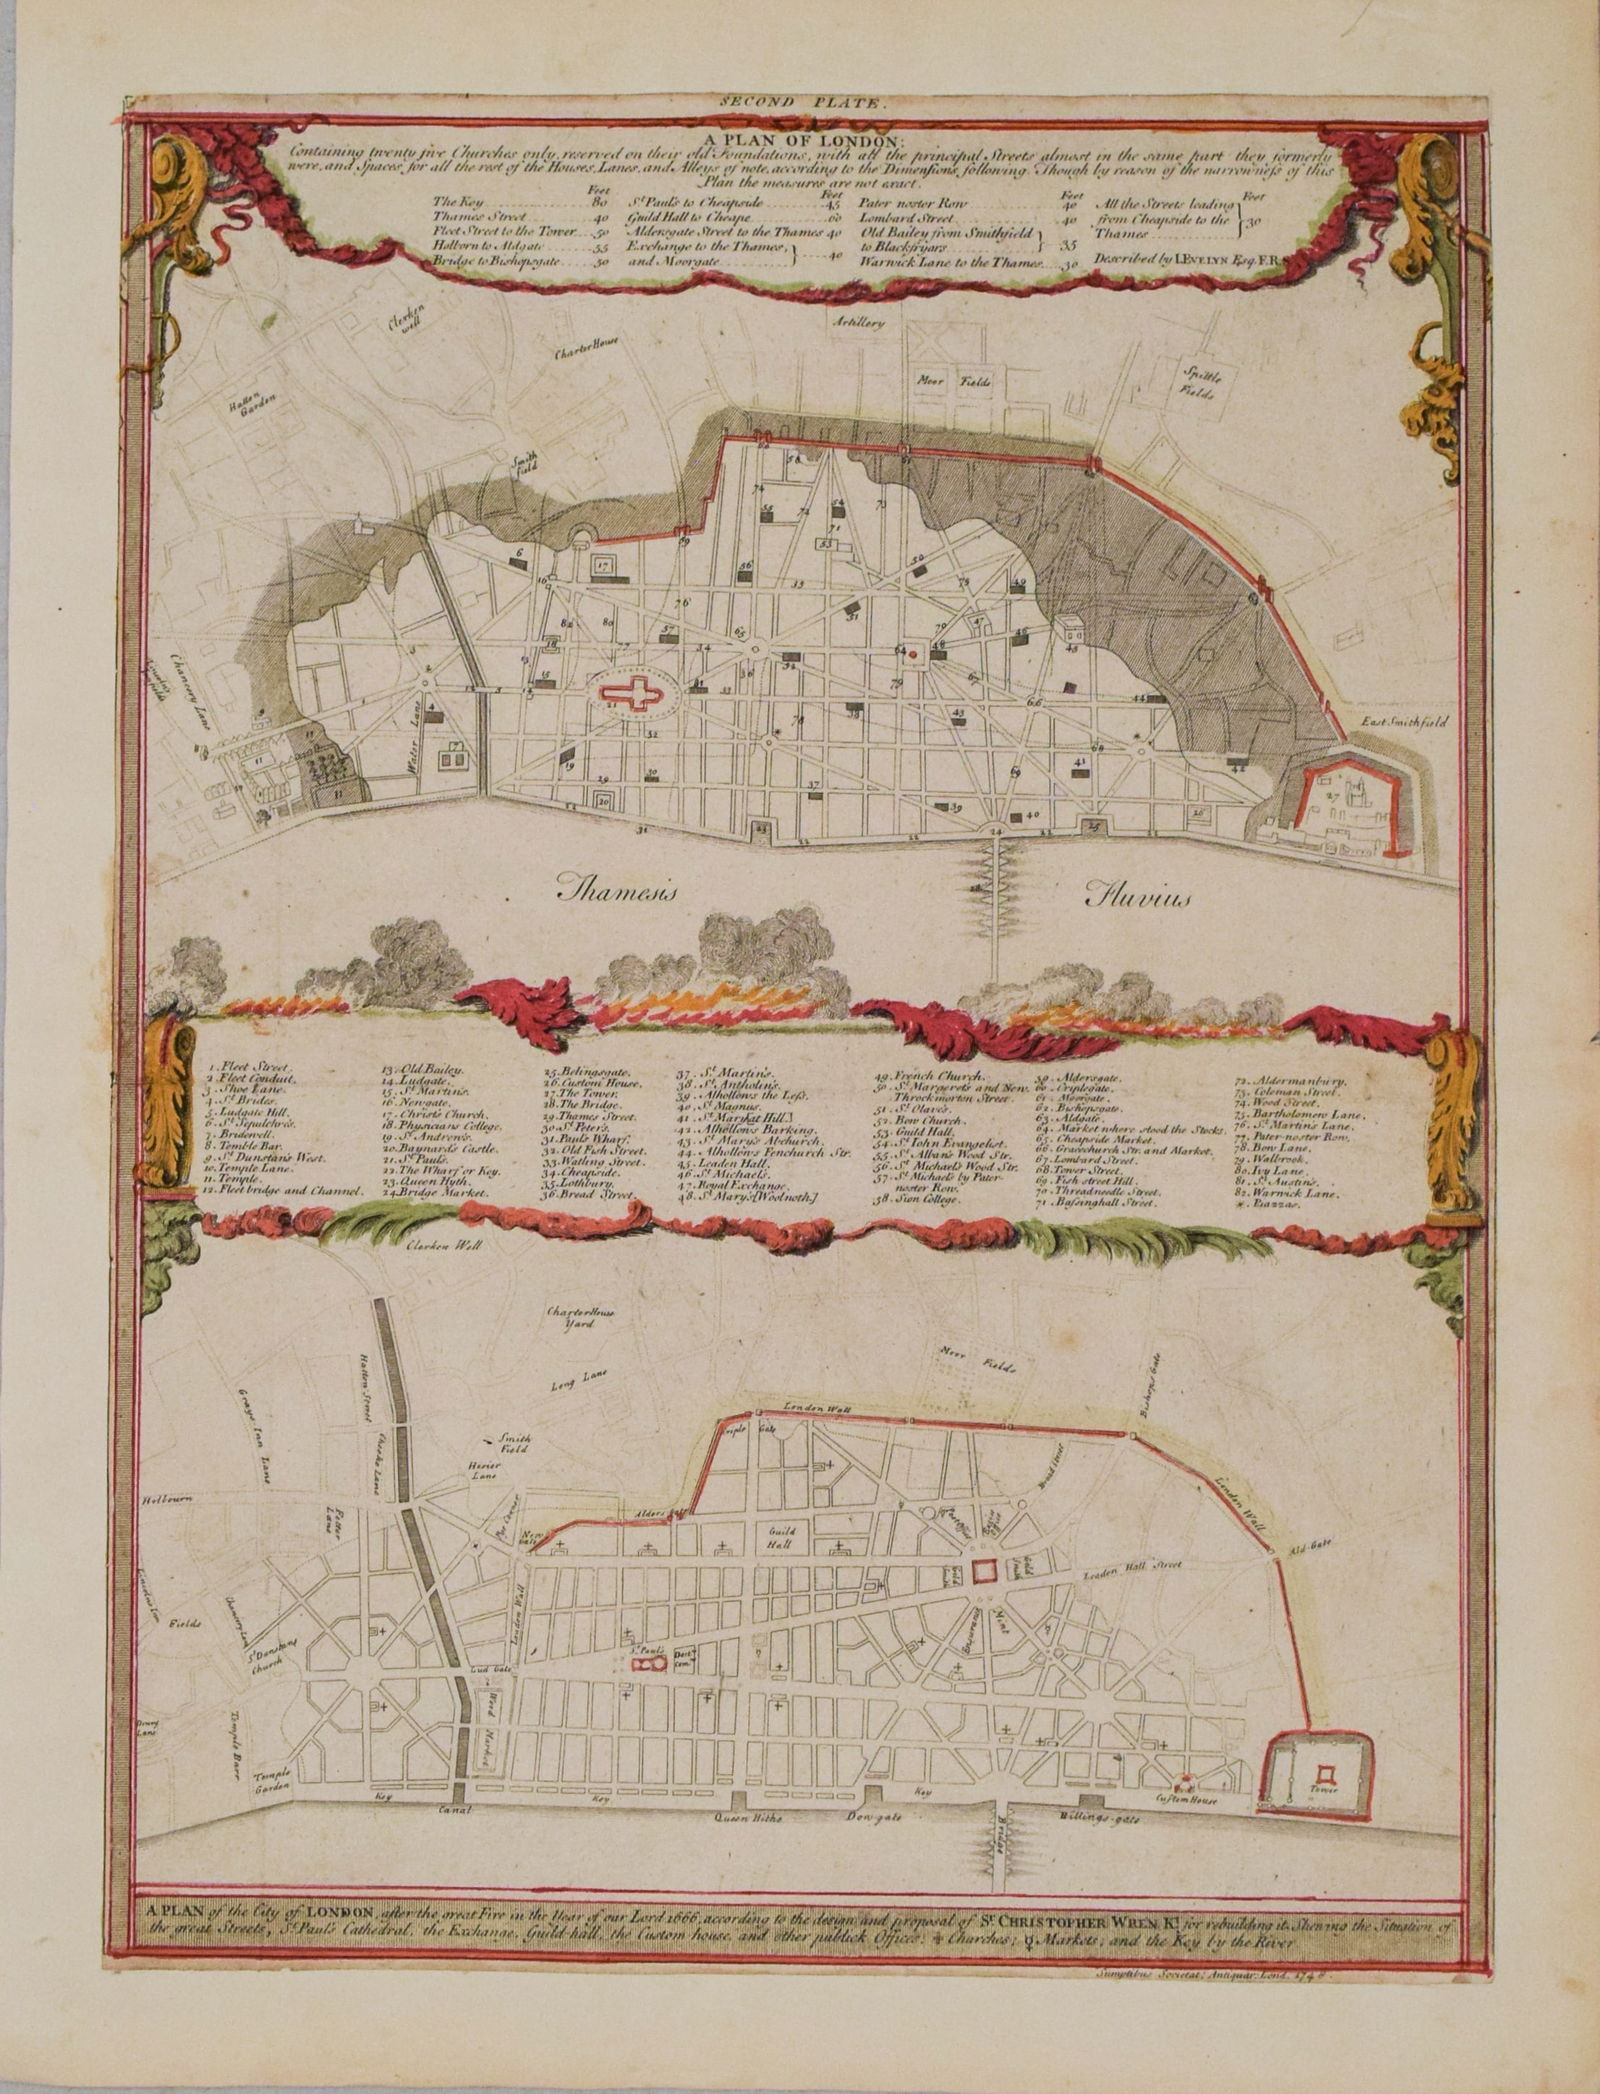 SECOND PLATE.
A PLAN OF LONDON:
Containing twenty five Churches only, reserved on their old Foundations, with all the principal Streets almost in the same part they formerly
were, and Spaces for all the rest of the Houses, Lanes, and Alleys of note, according to the Dimensions following. Though by reason of the narrowness of this
Plan the measures are not exact.
Feet
The Key 80
Thames Street 40
Fleet Street to the Tower 50
Holborn to Aldgate 55
Bridge to Bishopsgate 50
Feet
St. Pauls to Cheapside 45
Guild Hall to Cheape 60
Aldersgate Street to the Thames 40
Exchange to the Thames,
and Moorgate 40
Feet
Pater noster Row 40
Lombard Street 40
Old Bailey from Smithfield
to Blackfryars 35
Warwick Lane to the Thames 30
Feet
All the Streets leading
from Cheapside to the 30
Thames
Described by I. EVELYN Esq. F.R.S
Clerken
well
Charter House
Artillery
Moor Fields
Spittle
Fields
Hatton
Garden
Smith
field
Chancery Lane
Water Lane
East Smithfield
Thamesis Fluvius
1. Fleet Street.
2. Fleet Conduit.
3. Shoe Lane.
4. St. Brides.
5. Ludgate Hill.
6. St. Sepulchres.
7. Bridewell.
8. Temble Bar.
9. St. Dunstans West.
10. Temple Lane.
11. Temple.
12. Fleet bridge and Channel.
13. Old Bailey.
14. Ludgate.
15. St. Martins.
16. Newgate.
17. Christs Church.
18. Physicians College.
19. St. Andrews.
20. Baynards Castle.
21. St. Pauls.
22. The Wharf or Key.
23. Queen Hyth.
24. Bridge Market.
25. Belingsgate.
26. Custom House.
27. The Tower.
28. The Bridge.
29. Thames Street.
30. St. Peters.
31. Pauls Wharf.
32. Old Fish Street.
33. Watling Street.
34. Cheapside.
35. Lothbury.
36. Bread Street.
37. St. Martins.
38. St. Antholins.
39. Alhollows the Less.
40. St. Magnus.
41. St. Mary [at Hill.]
42. Alhollows Barking.
43. St. Marys Abchurch.
44. Alhollows Fenchurch Str.
45. Leaden Hall.
46. St. Michaels.
47. Royal Exchange.
48. St. Marys [Woolnoth.]
49. French Church.
50. St. Margerets and New.
Throckmorton Street.
51. St. Olaves.
52. Bow Church.
53. Guild Hall.
54. St. Iohn Evangelist.
55. St. Albans Wood Str.
56. St. Michaels Wood Str.
57. St. Michaels by Pater-
noster Row.
58. Sion College.
59. Aldersgate.
60. Criplegate.
61. Moorgate.
62. Bishopsgate.
63. Aldgate.
64. Market where stood the Stocks.
65. Cheapside Market.
66. Gracechurch Str. and Market.
67. Lombard Street.
68. Tower Street.
69. Fish street Hill.
70. Threadneedle Street.
71. Bassinghall Street.
72. Aldermanbury.
73. Coleman Street.
74. Wood Street.
75. Bartholomew Lane.
76. St. Martins Lane.
77. Pater-noster Row.
78. Bow Lane.
79. Walbrook.
80. Ivy Lane.
81. St. Austins.
82. Warwick Lane.
*. Piazzas.
Clerken Well
Charter House
Yard
Long Lane
Moor Fields
Bishops Gate
Hatton Street
Grays Inn Lane
Smith
Field
Hosier
Lane
London Wall
Criple Gate
Broad Street
London Wall
Holbourn
Fetter
Lane
Alders Gate
New
Gate
Guild
Hall
Post Office
Gold
Smith
Ald-Gate
Leaden Hall Street
Fields
St. Dunstans
Church
London Wall
St. Pauls
Insurance
Mint
Lud Gate
Wood Market
Temple Barr
Temple
Garden
Key
Canal
Key
Queen Hithe
Dow-gate
Key
Bridge
Billings-gate
Custom House
Tower
A PLAN of the City of LONDON, after the great Fire in the Year of our Lord 1666, according to the design and proposal of Sr. CHRISTOPHER WREN Kt. for rebuilding it. Shewing the Situation of
the great Streets, St. Paul's Cathedral, the Exchange, Guild-hall, the Custom house, and other publick Offices; + Churches; ♀ Markets; and the Key by the River.
Sumptibus Societat. Antiquar. Lond. 1748.